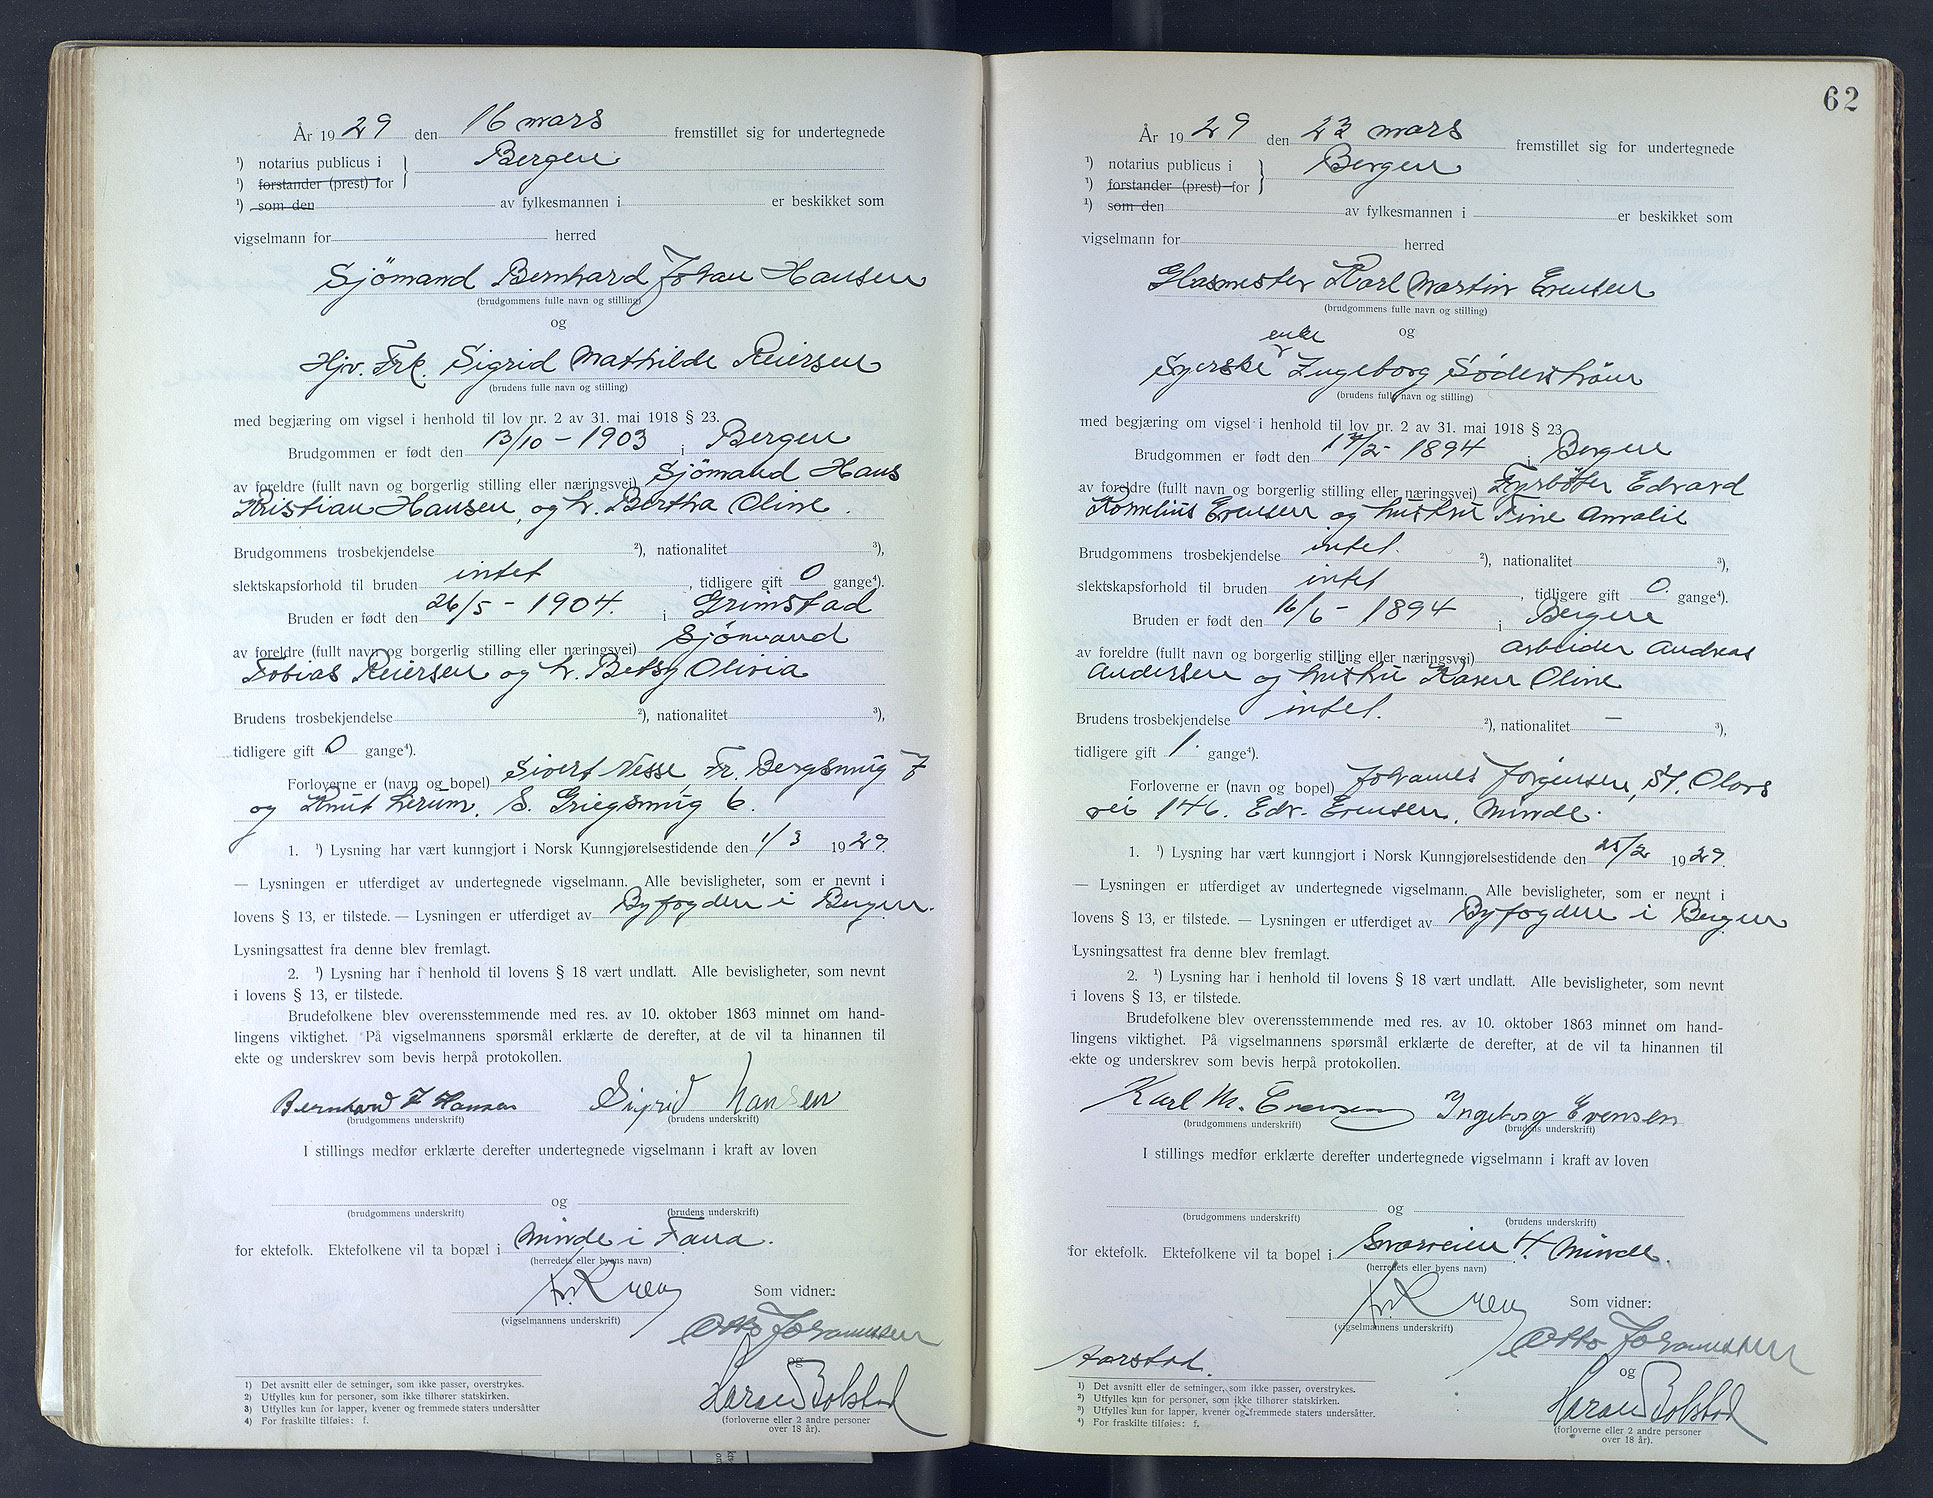 År 1929 den 16 mars fremstillet sig for undertegnede
¹) notarius publicus i } Bergen
¹) forstander (prest) for
¹) som den av fylkesmannen i er beskikket som
vigselmann for herred
Sjömand Bernhard Johan Hansen
(brudgommens fulle navn og stilling)
og
Hjv. Frk. Sigrid Mathilde Reiersen
(brudens fulle navn og stilling)
med begjæring om vigsel i henhold til lov nr. 2 av 31. mai 1918 § 23.
Brudgommen er født den 13/10 - 1903 i Bergen
av foreldre (fullt navn og borgerlig stilling eller næringsvei) Sjömand Hans
Kristian Hansen og h. Bertha Oline.
Brudgommens trosbekjendelse ²), nationalitet ³),
slektskapsforhold til bruden intet, tidligere gift 0 gange⁴).
Bruden er født den 26/5 - 1904. i Grimstad
av foreldre (fullt navn og borgerlig stilling eller næringsvei) Sjömand
Tobias Reiersen og h. Betsy Olivia
Brudens trosbekjendelse ²), nationalitet ³),
tidligere gift 0 gange⁴).
Forloverne er (navn og bopel) Sivert Nesse, Fr. Bergsmug 7
og Knut Lerum. S. Griegsmug 6.
1. ¹) Lysning har vært kunngjort i Norsk Kunngjørelsestidende den 1/3 1929.
— Lysningen er utferdiget av undertegnede vigselmann. Alle bevisligheter, som er nevnt i
lovens § 13, er tilstede. — Lysningen er utferdiget av Byfogden i Bergen.
Lysningsattest fra denne blev fremlagt.
2. ¹) Lysning har i henhold til lovens § 18 vært undlatt. Alle bevisligheter, som nevnt
i lovens § 13, er tilstede.
Brudefolkene blev overensstemmende med res. av 10. oktober 1863 minnet om hand-
lingens viktighet. På vigselmannens spørsmål erklærte de derefter, at de vil ta hinannen til
ekte og underskrev som bevis herpå protokollen.
Bernhard J Hansen Sigrid Hansen
(brudgommens underskrift) (brudens underskrift)
I stillings medfør erklærte derefter undertegnede vigselmann i kraft av loven
og
(brudgommens underskrift) (brudens underskrift)
for ektefolk. Ektefolkene vil ta bopæl i Minde i Fana.
(herredets eller byens navn)
Som vidner:
(vigselmannens underskrift)
Otto Johannessen
og
Haran Bolstad
(forloverne eller 2 andre personer
over 18 år).
1) Det avsnitt eller de setninger, som ikke passer, overstrykes.
2) Utfylles kun for personer, som ikke tilhører statskirken.
3) Utfylles kun for lapper, kvener og fremmede staters undersåtter
4) For fraskilte tilføies: f.
62
År 1929 den 23 mars fremstillet sig for undertegnede
¹) notarius publicus i } Bergen
¹) forstander (prest) for
¹) som den av fylkesmannen i er beskikket som
vigselmann for herred
Glasmester Karl Martin Evensen
(brudgommens fulle navn og stilling)
og
enke
Syerske Ingeborg Söderström
(brudens fulle navn og stilling)
med begjæring om vigsel i henhold til lov nr. 2 av 31. mai 1918 § 23
Brudgommen er født den 17/2 - 1894 i Bergen
av foreldre (fullt navn og borgerlig stilling eller næringsvei) Fyrbøter Edvard
Kornelius Evensen og hustru Tine Amalie
Brudgommens trosbekjendelse intet. ²), nationalitet ³),
slektskapsforhold til bruden intet, tidligere gift 0. gange⁴).
Bruden er født den 16/6 - 1894 i Bergen
av foreldre (fullt navn og borgerlig stilling eller næringsvei) arbeider Andreas
Andersen og hustru Karen Oline
Brudens trosbekjendelse intet. ²), nationalitet — ³),
tidligere gift 1. gange⁴).
Forloverne er (navn og bopel) Johannes Jörgensen, St. Olavs
vei 146. Edv. Evensen, Minde.
1. ¹) Lysning har vært kunngjort i Norsk Kunngjørelsestidende den 25/2 1929.
— Lysningen er utferdiget av undertegnede vigselmann. Alle bevisligheter, som er nevnt i
lovens § 13, er tilstede. — Lysningen er utferdiget av Byfogden i Bergen
Lysningsattest fra denne blev fremlagt.
2. ¹) Lysning har i henhold til lovens § 18 vært undlatt. Alle bevisligheter, som nevnt
i lovens § 13, er tilstede.
Brudefolkene blev overensstemmende med res. av 10. oktober 1863 minnet om hand-
lingens viktighet. På vigselmannens spørsmål erklærte de derefter, at de vil ta hinannen til
ekte og underskrev som bevis herpå protokollen.
Karl M. Evensen Ingeborg Evensen
(brudgommens underskrift) (brudens underskrift)
I stillings medfør erklærte derefter undertegnede vigselmann i kraft av loven
og
(brudgommens underskrift) (brudens underskrift)
for ektefolk. Ektefolkene vil ta bopel i 4. Minde.
(herredets eller byens navn)
Som vidner:
(vigselmannens underskrift)
Otto Johannessen
og
Aarstad.
Haran Bolstad
(forloverne eller 2 andre personer
over 18 år).
1) Det avsnitt eller de setninger, som ikke passer, overstrykes.
2) Utfylles kun for personer, som ikke tilhører statskirken.
3) Utfylles kun for lapper, kvener og fremmede staters undersåtter.
4) For fraskilte tilføies: f.